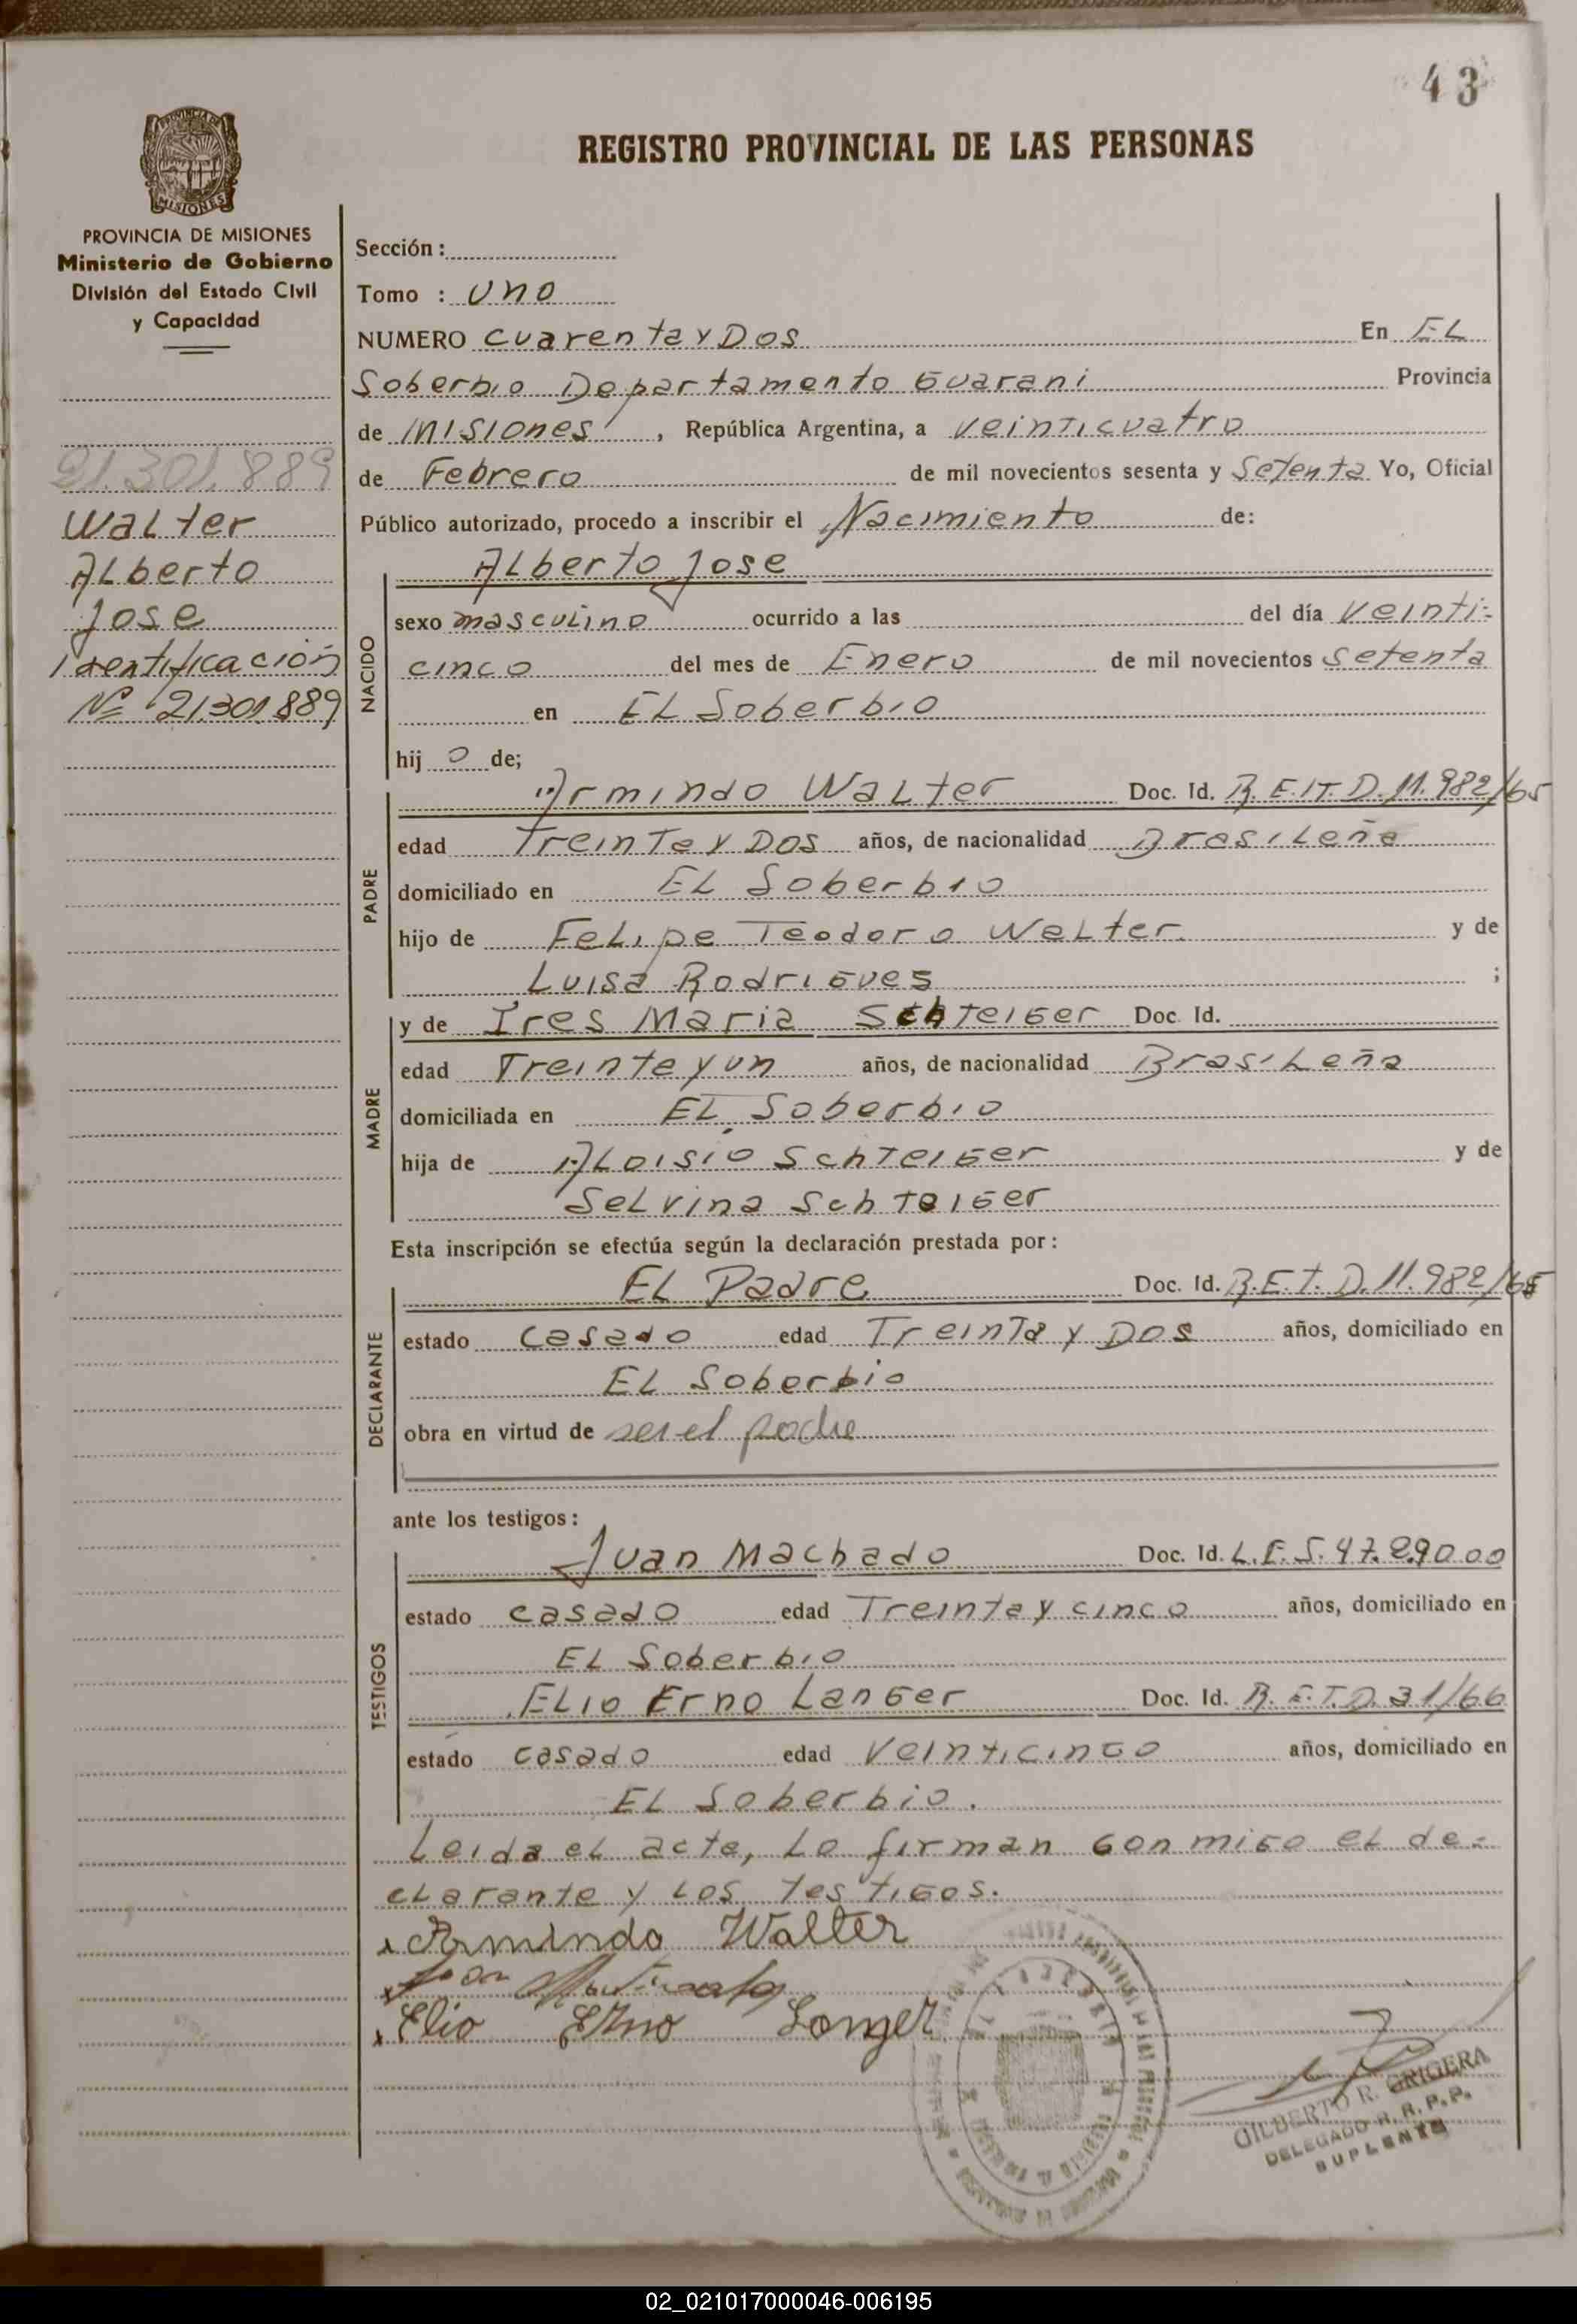 43
REGISTRO PROVINCIAL DE LAS PERSONAS
PROVINCIA DE MISIONES
Ministerio de Gobierno
División del Estado Civil
y Capacidad
21.301.889
Walter
Alberto
Jose
Identificación
Nº 21.301.889
Sección:
Tomo : uno
NUMERO cuarenta y Dos En EL
Soberbio Departamento Guarani Provincia
de Misiones, República Argentina, a veinticuatro
de Febrero de mil novecientos sesenta y Setenta Yo, Oficial
Público autorizado, procedo a inscribir el Nacimiento de:
NACIDO
Alberto Jose
sexo masculino ocurrido a las del día veinti-
cinco del mes de Enero de mil novecientos setenta
en EL Soberbio
hij o de;
PADRE
Armindo Walter Doc. Id. R.E.IT.D. 11.982/65
edad Treinta y Dos años, de nacionalidad Brasileña
domiciliado en EL Soberbio
hijo de Felipe Teodoro Walter y de
Luisa Rodrigues ;
MADRE
y de Ires Maria Schteiger Doc. Id.
edad Treinta y un años, de nacionalidad Brasileña
domiciliada en EL Soberbio
hija de Aloisio Schteiger y de
Selvina Schteiger
Esta inscripción se efectúa según la declaración prestada por:
DECLARANTE
EL Padre Doc. Id. R.E.T.D. 11.982/65
estado casado edad Treinta y Dos años, domiciliado en
EL Soberbio
obra en virtud de ser el padre
ante los testigos:
TESTIGOS
Juan Machado Doc. Id.
estado casado edad Treinta y cinco años, domiciliado en
EL Soberbio
Elio Erno Langer Doc. Id. R.E.T.D. 31/66
estado casado edad veinticinco años, domiciliado en
EL Soberbio.
Leida el acta, La firman conmigo el de-
clarante y los testigos.
Armindo Walter
Elio Erno Langer
GILBERTO R. GRIGERA
DELEGADO R. R. P. P.
SUPLENTE
02_021017000046-006195